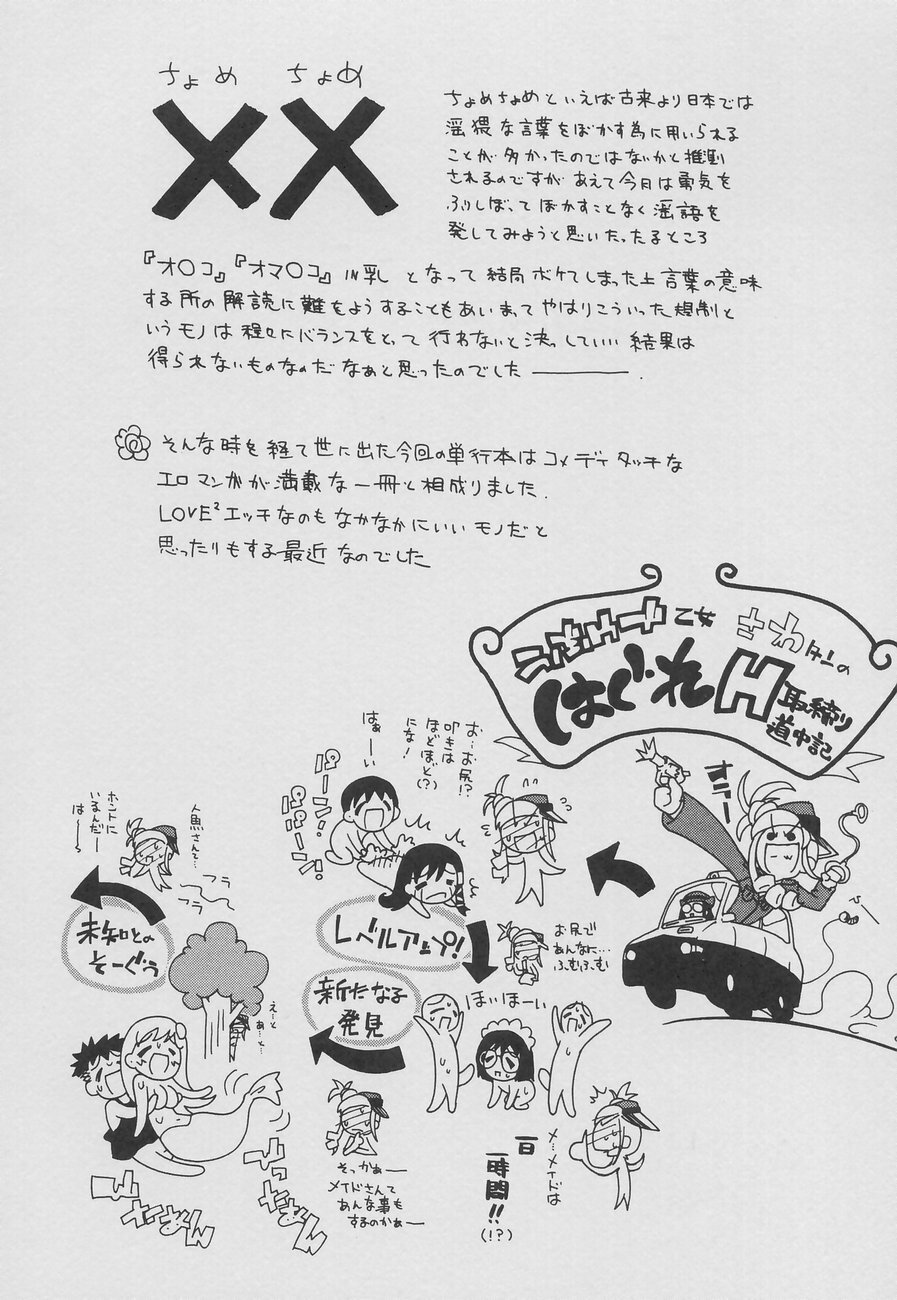 ちょめ ちょめ
××
ちょめちょめといえば古来より日本では
淫猥な言葉をぼかす為に用いられる
ことが多かったのではないかと推測
されるのですが あえて今日は勇気を
ふりしぼってぼかすことなく淫語を
発してみようと思いたったるところ
『オ〇コ』『オマ〇コ』IN乳 となって結局ボケてしまった上言葉の意味
する所の解読に難をようすることもあいまってやはりこういった規制と
いうモノは程々にバランスをとって行わないと決っしていい結果は
得られないものなのだなぁと思ったのでした――.
そんな時を経て世に出た今回の単行本はコメディタッチな
エロマンガが満載な一冊と相成りました.
LOVE²エッチなのもなかなかにいいモノだと
思ったりもする最近なのでした
乙女 さわタンの
はぐれH取締り
道中記
お…お尻!?
叩きは
ほどほど(?)
にな!
はぁーい
パーン!
パーン!
レベルアップ!
お尻で
あんなに…
ふむふむ
ほいほーい
メ…メイドは
一日
一時間!!
(!?)
新たなる
発見
そっかぁー
メイドさんて
あんな事も
するのかぁー
えーと
ぁ…と…
人魚さんて…
ホントに
いるんだー
はー
フラ
フラ
未知との
そーぐう